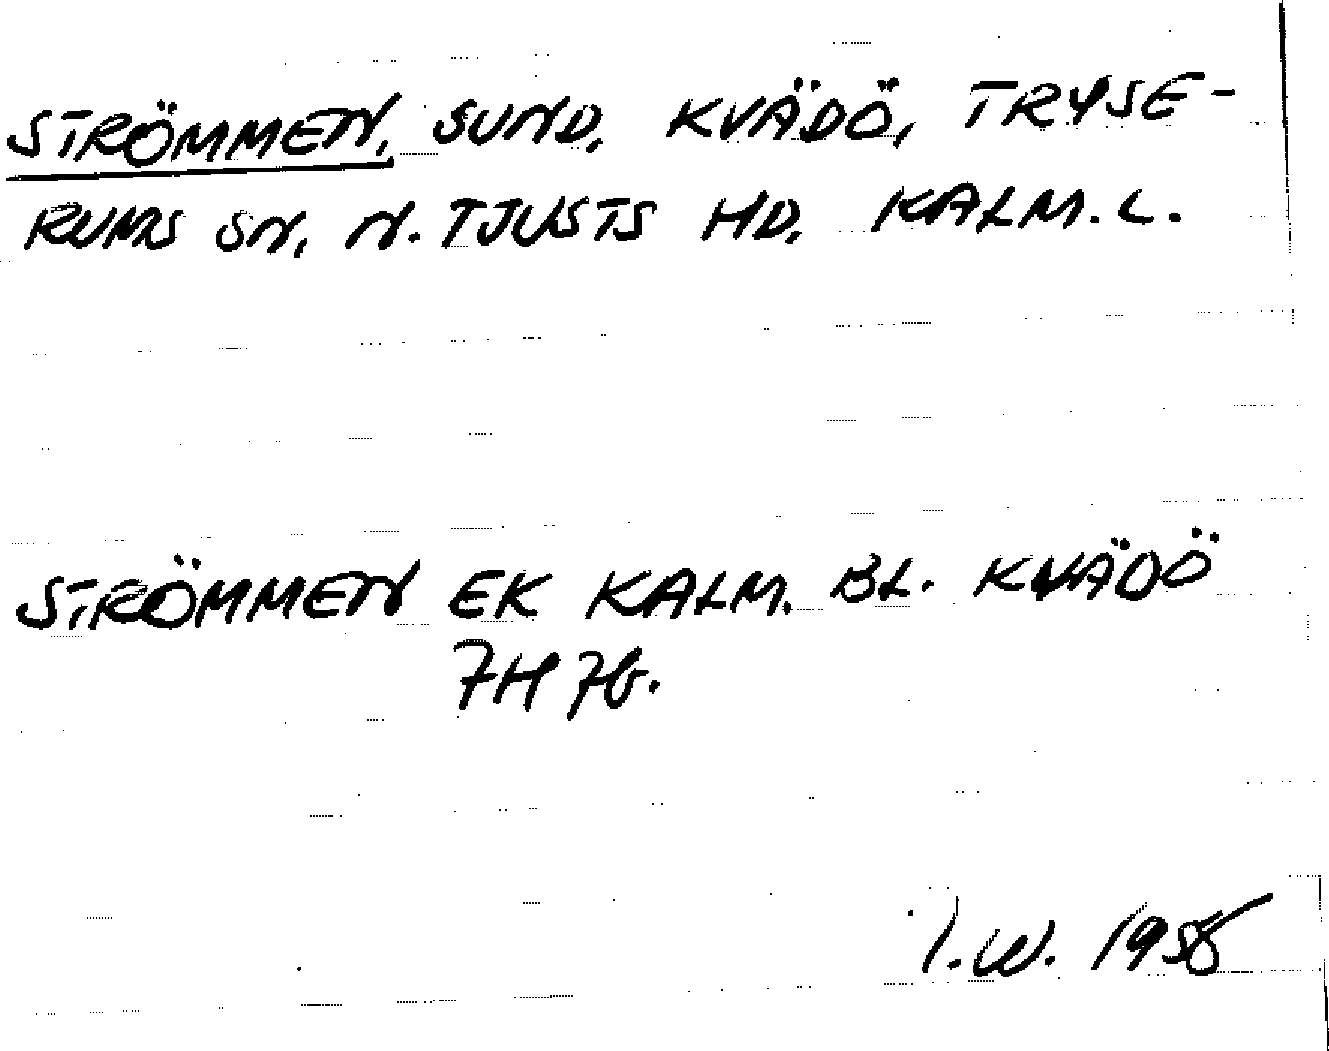 STRÖMMEN, SUND, KVÄDÖ, TRYSE-
RUMS SN, N. TJUSTS HD, KALM. L.
STRÖMMEN EK KALM. BL. KVÄDÖ
7H 7b.
I.W. 1958